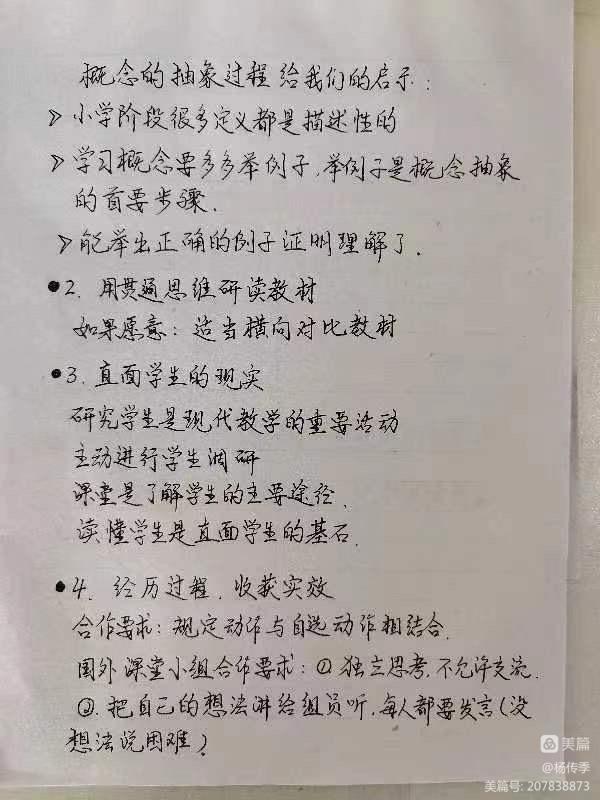 概念的抽象过程给我们的启示：
》小学阶段很多定义都是描述性的
》学习概念要多多举例子，举例子是概念抽象
的首要步骤.
》能举出正确的例子证明理解了.
●2. 用贯通思维研读教材
如果愿意：适当横向对比教材
●3. 直面学生的现实
研究学生是现代教学的重要活动
主动进行学生调研
课堂是了解学生的主要途径.
读懂学生是直面学生的基石.
●4. 经历过程，收获实效
合作要求：规定动作与自选动作相结合.
国外课堂小组合作要求：①独立思考，不允许交流.
②. 把自己的想法讲给组员听，每人都要发言(没
想法说困难)
美篇
@杨传季
美篇号: 207838873